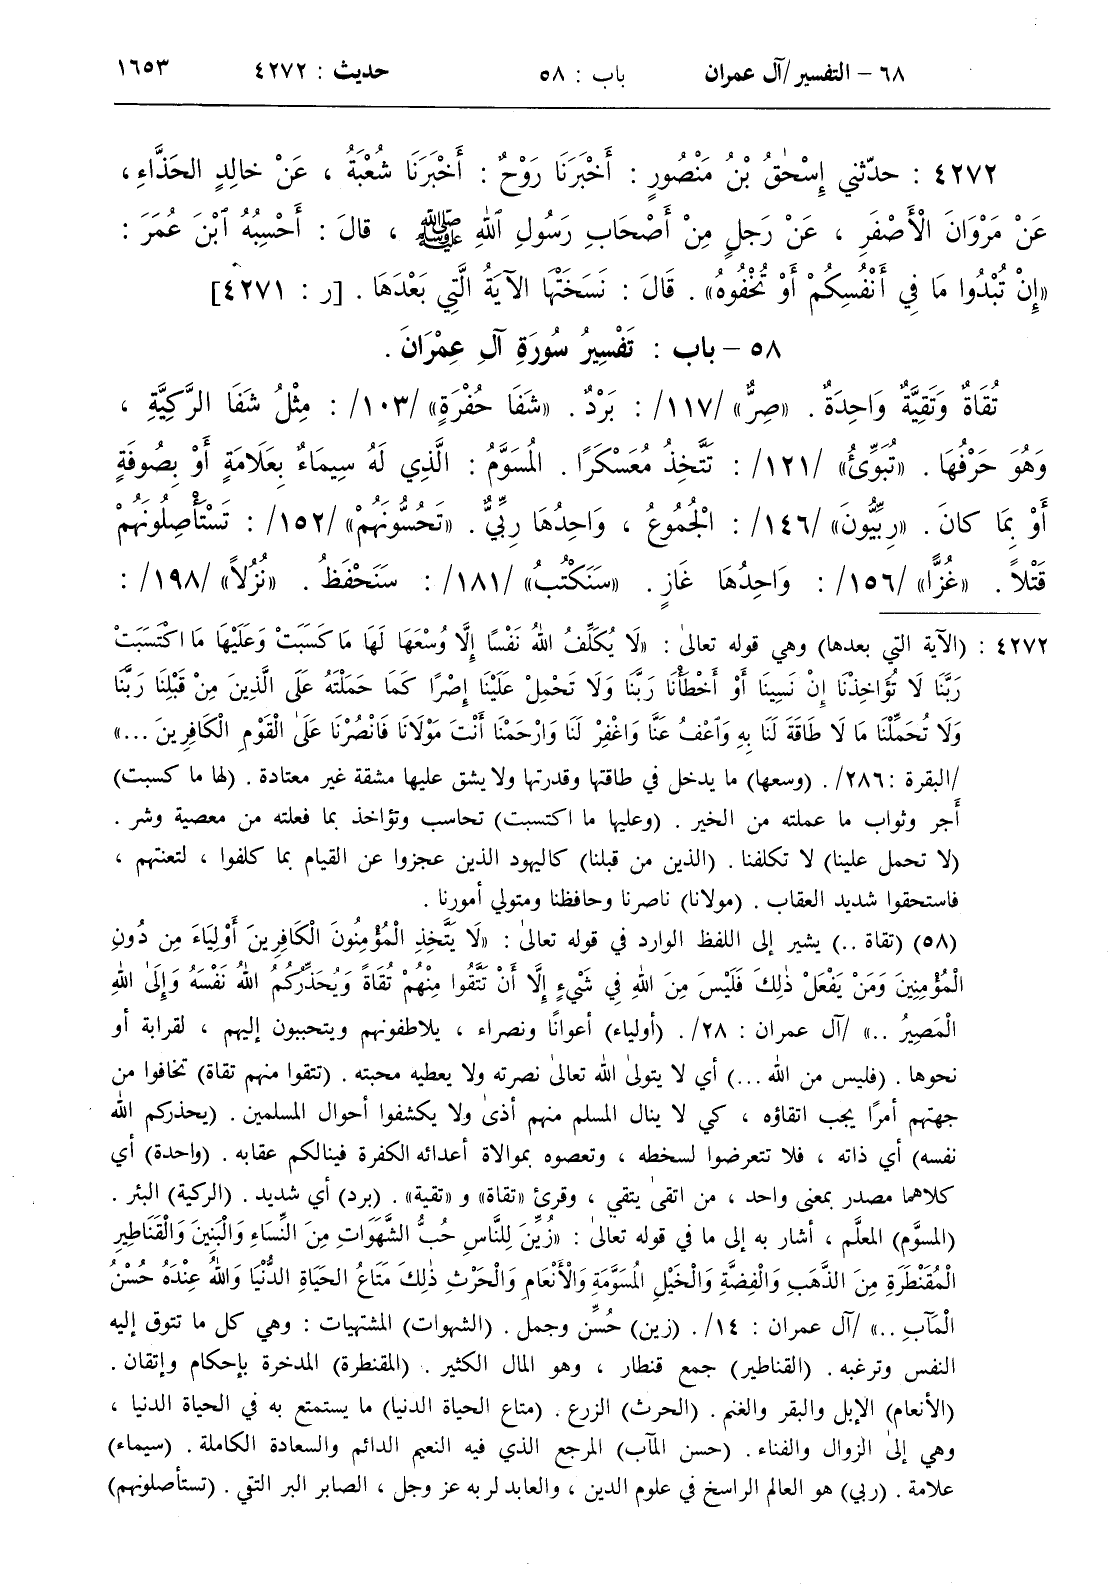 ٦٨ - التفسير/آل عمران باب : ٥٨ حديث : ٤٢٧٢ ١٦٥٣
٤٢٧٢ : حدّثني إِسْحٰقُ بْنُ مَنْصُورٍ : أَخْبَرَنَا رَوْحٌ : أَخْبَرَنَا شُعْبَةُ ، عَنْ خالِدٍ الحَذَّاءِ ،
عَنْ مَرْوَانَ الْأَصْفَرِ ، عَنْ رَجلٍ مِنْ أَصْحَابِ رَسُولِ ٱللهِ ﷺ ، قالَ : أَحْسِبُهُ ٱبْنَ عُمَرَ :
«إِنْ تُبْدُوا مَا فِي أَنْفُسِكُمْ أَوْ تُخْفُوهُ» . قَالَ : نَسَخَتْهَا الآيَةُ الَّتِي بَعْدَهَا . [ر : ٤٢٧١]
٥٨ - باب : تَفْسِيرُ سُورَةِ آلِ عِمْرَانَ .
تُقَاةٌ وَتَقِيَّةٌ وَاحِدَةٌ . «صِرٌّ» /١١٧/ : بَرْدٌ . «شَفَا حُفْرَةٍ» /١٠٣/ : مِثْلُ شَفَا الرَّكِيَّةِ ،
وَهُوَ حَرْفُهَا . «تُبَوِّئُ» /١٢١/ : تَتَّخِذُ مُعَسْكَرًا . المُسَوَّمُ : الَّذِي لَهُ سِيمَاءٌ بِعَلَامَةٍ أَوْ بِصُوفَةٍ
أَوْ بِمَا كانَ . «رِبِّيُّونَ» /١٤٦/ : الْجُمُوعُ ، وَاحِدُهَا رِبِّيٌّ . «تَحُسُّونَهُمْ» /١٥٢/ : تَسْتَأْصِلُونَهُمْ
قَتْلاً . «غُزًّا» /١٥٦/ : وَاحِدُهَا غَازٍ . «سَنَكْتُبُ» /١٨١/ : سَنَحْفَظُ . «نُزُلاً» /١٩٨/ :
٤٢٧٢ : (الآية التي بعدها) وهي قوله تعالىٰ : «لَا يُكَلِّفُ اللهُ نَفْسًا إِلَّا وُسْعَهَا لَهَا مَا كَسَبَتْ وَعَلَيْهَا مَا اكْتَسَبَتْ
رَبَّنَا لَا تُؤَاخِذْنَا إِنْ نَسِينَا أَوْ أَخْطَأْنَا رَبَّنَا وَلَا تَحْمِلْ عَلَيْنَا إِصْرًا كَمَا حَمَلْتَهُ عَلَى الَّذِينَ مِنْ قَبْلِنَا رَبَّنَا
وَلَا تُحَمِّلْنَا مَا لَا طَاقَةَ لَنَا بِهِ وَٱعْفُ عَنَّا وَاغْفِرْ لَنَا وَارْحَمْنَا أَنْتَ مَوْلَانَا فَانْصُرْنَا عَلَى الْقَوْمِ الْكَافِرِينَ ...»
/البقرة : ٢٨٦/ . (وسعها) ما يدخل في طاقتها وقدرتها ولا يشق عليها مشقة غير معتادة . (لها ما كسبت)
أجر وثواب ما عملته من الخير . (وعليها ما اكتسبت) تحاسب وتؤاخذ بما فعلته من معصية وشر .
(لا تحمل علينا) لا تكلفنا . (الذين من قبلنا) كاليهود الذين عجزوا عن القيام بما كلفوا ، لتعنتهم ،
فاستحقوا شديد العقاب . (مولانا) ناصرنا وحافظنا ومتولي أمورنا .
(٥٨) (تقاة ..) يشير إلى اللفظ الوارد في قوله تعالىٰ : «لَا يَتَّخِذِ الْمُؤْمِنُونَ الْكَافِرِينَ أَوْلِيَاءَ مِن دُونِ
الْمُؤْمِنِينَ وَمَنْ يَفْعَلْ ذٰلِكَ فَلَيْسَ مِنَ اللهِ فِي شَيْءٍ إِلَّا أَنْ تَتَّقُوا مِنْهُمْ تُقَاةً وَيُحَذِّرُكُمُ اللهُ نَفْسَهُ وَإِلَى اللهِ
الْمَصِيرُ ..» /آل عمران : ٢٨/ . (أولياء) أعوانًا ونصراء ، يلاطفونهم ويتحببون إليهم ، لقرابة أو
نحوها . (فليس من الله ...) أي لا يتولىٰ الله تعالىٰ نصرته ولا يعطيه محبته . (تتقوا منهم تقاة) تخافوا من
جهتهم أمرًا يجب اتقاؤه ، كي لا ينال المسلم منهم أذىٰ ولا يكشفوا أحوال المسلمين . (يحذركم الله
نفسه) أي ذاته ، فلا تتعرضوا لسخطه ، وتعصوه بموالاة أعدائه الكفرة فينالكم عقابه . (واحدة) أي
كلاهما مصدر بمعنى واحد ، من اتقىٰ يتقي ، وقرئ «تقاة» و «تقية» . (برد) أي شديد . (الركية) البئر .
(المسوَّم) المعلَّم ، أشار به إلى ما في قوله تعالىٰ : «زُيِّنَ لِلنَّاسِ حُبُّ الشَّهَوَاتِ مِنَ النِّسَاءِ وَالْبَنِينَ وَالْقَنَاطِيرِ
الْمُقَنْطَرَةِ مِنَ الذَّهَبِ وَالْفِضَّةِ وَالْخَيْلِ الْمُسَوَّمَةِ وَالْأَنْعَامِ وَالْحَرْثِ ذٰلِكَ مَتَاعُ الحَيَاةِ الدُّنْيَا وَاللهُ عِنْدَهُ حُسْنُ
الْمَآبِ ..» /آل عمران : ١٤/ . (زين) حُسِّن وجمل . (الشهوات) المشتهيات : وهي كل ما تتوق إليه
النفس وترغبه . (القناطير) جمع قنطار ، وهو المال الكثير . (المقنطرة) المدخرة بإحكام وإتقان .
(الأنعام) الإبل والبقر والغنم . (الحرث) الزرع . (متاع الحياة الدنيا) ما يستمتع به في الحياة الدنيا ،
وهي إلى الزوال والفناء . (حسن المآب) المرجع الذي فيه النعيم الدائم والسعادة الكاملة . (سيماء)
علامة . (ربي) هو العالم الراسخ في علوم الدين ، والعابد لربه عز وجل ، الصابر البر التقي . (تستأصلونهم)